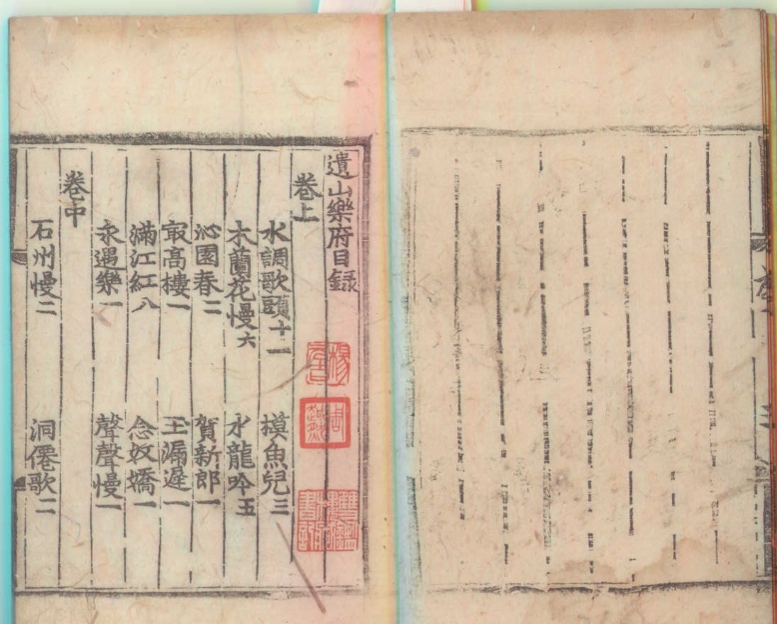 遺山樂府目録
卷上
水調歌頭十一 摸魚兒三
木蘭花慢六 水龍吟五
沁園春二 賀新郎一
㝡髙樓一 玉漏遲一
滿江紅八 念奴嬌一
永遇樂一 聲聲慢一
卷中
石州慢二 洞僊歌二